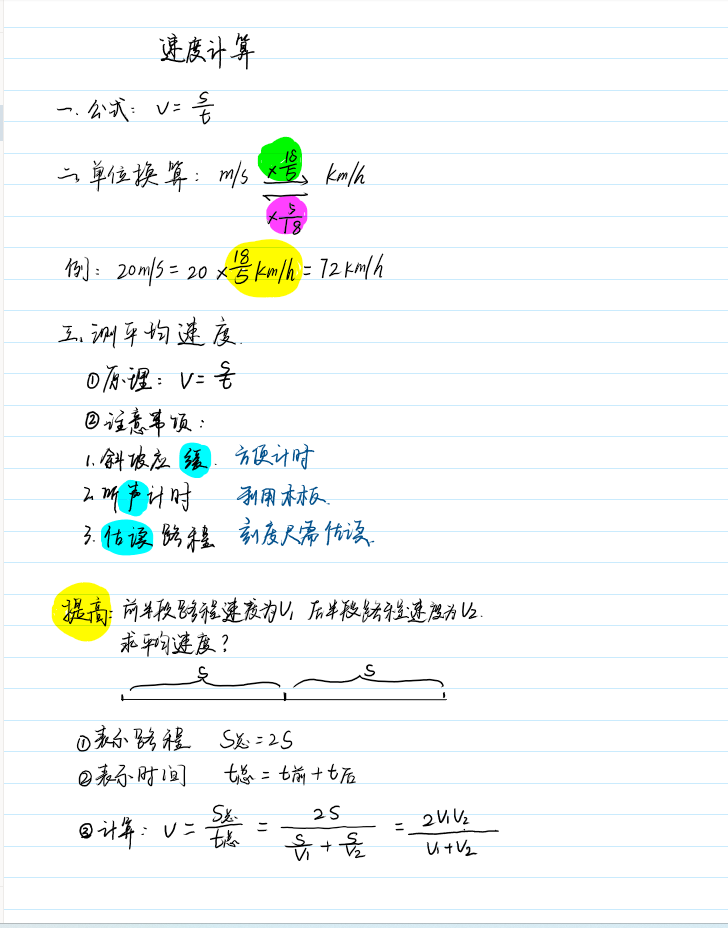 速度计算
一. 公式: V = s/t
二. 单位换算: m/s ×18/5 km/h
×5/18
例: 20m/s = 20 × 18/5 km/h = 72 km/h
三. 测平均速度.
①原理: V = s/t
②注意事项:
1. 斜坡应缓. 方便计时
2. 听声计时 利用木板.
3. 估读路程 刻度尺需估读.
提高: 前半段路程速度为V₁ 后半段路程速度为V₂.
求平均速度?
S S
①表示路程 S总 = 2S
②表示时间 t总 = t前 + t后
③计算: V = S总/t总 = 2S/(S/V₁ + S/V₂) = 2V₁V₂/(V₁+V₂)